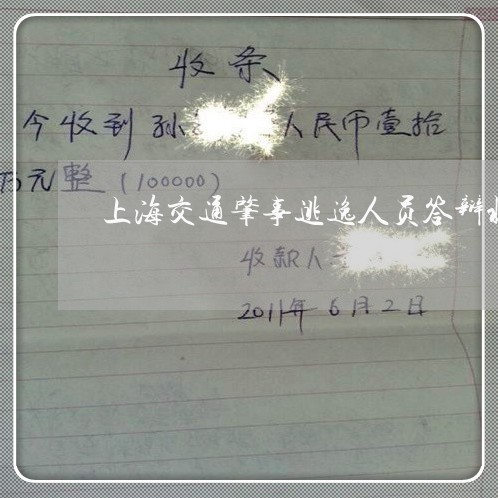 收条
今收到孙 人民币壹拾
万元整(100000)
上海交通肇事逃逸人员答辩
收款人
2011年6月2日